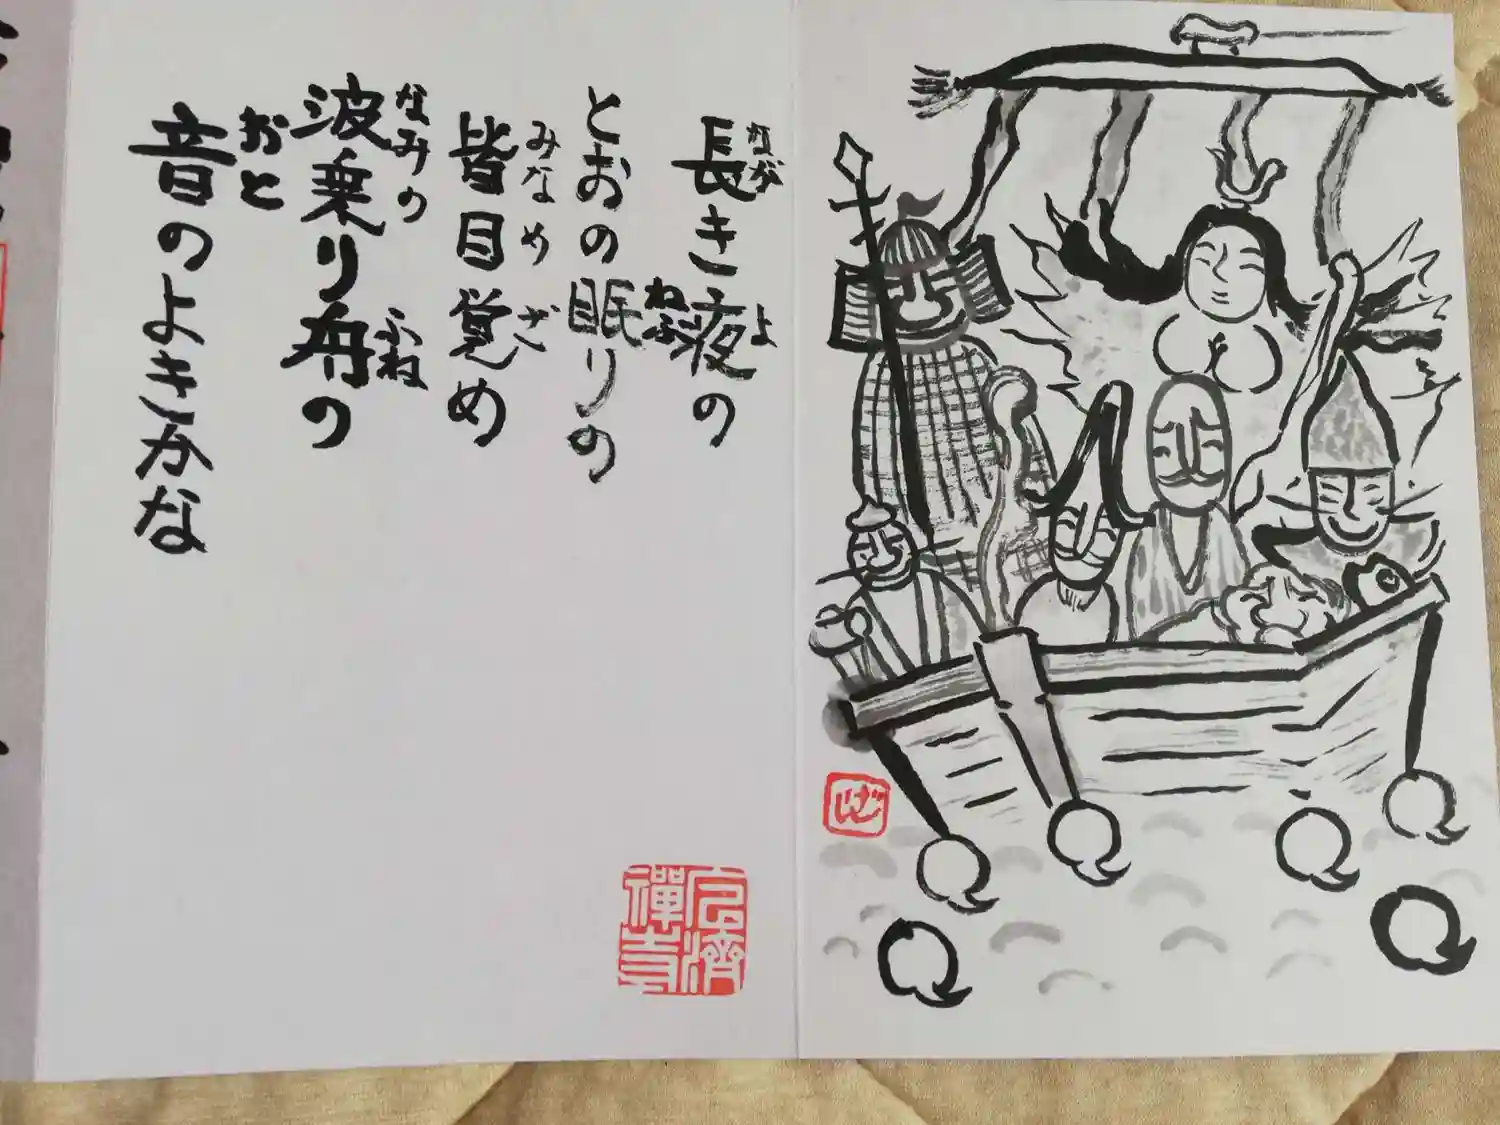 長き夜の
ながよ
とおの眠りの
ねふ
皆目覚め
みなめざ
波乗り舟の
なみのふね
音のよきかな
おと
禅寺